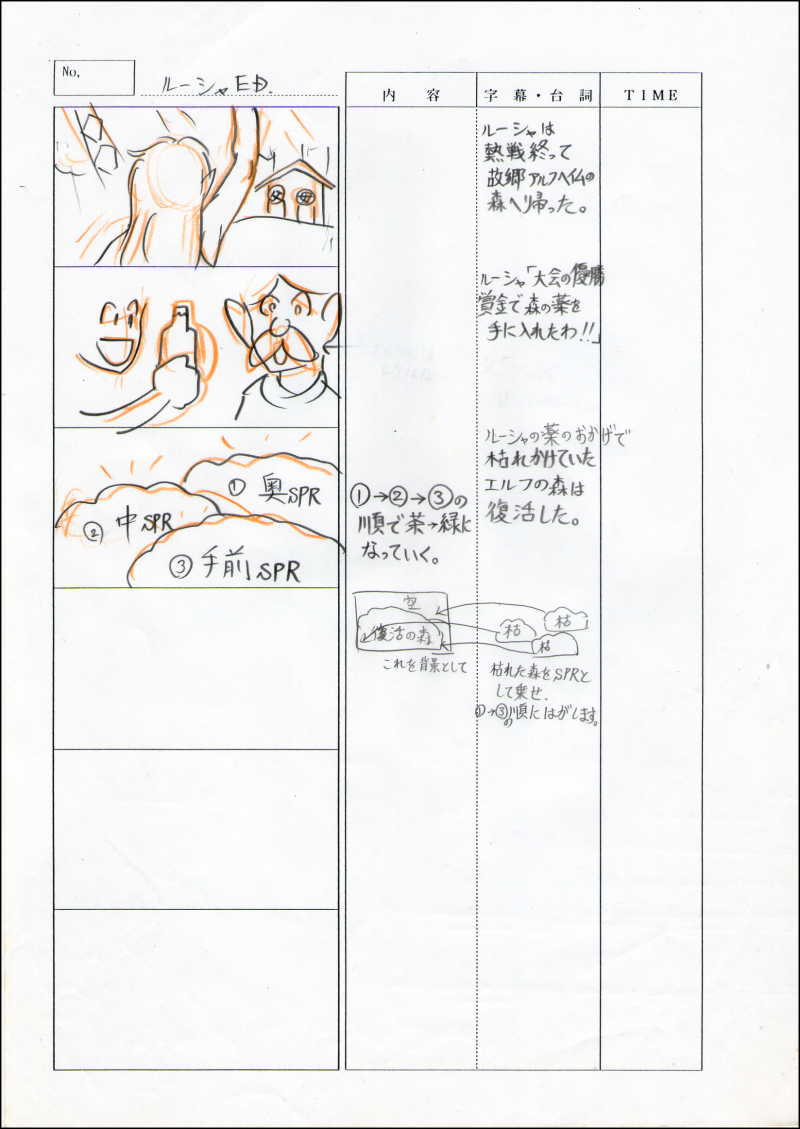 No.
ルーシャED.
内 容
字 幕・台 詞
TIME
ルーシャは
熱戦終って
故郷アルフヘイムの
森へ帰った。
ルーシャ「大会の優勝
賞金で森の薬を
手に入れたわ!!」
①奥SPR
②中SPR
③手前SPR
①→②→③の
順で茶→緑に
なっていく。
ルーシャの薬のおかげで
枯れかけていた
エルフの森は
復活した。
空
復活の森
枯
枯
枯
これを背景として
枯れた森をSPRと
して乗せ、
①→③の順にはがします。